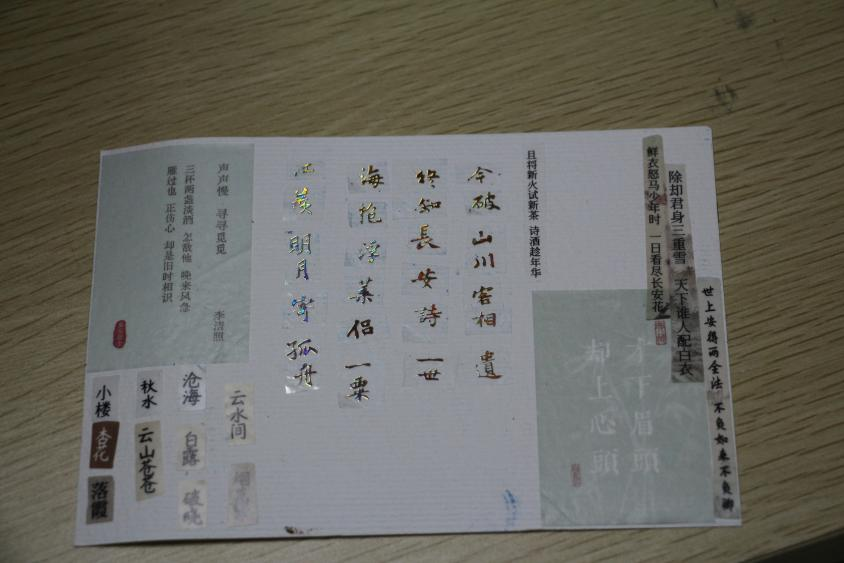 世上安得两全法 不负如来不负卿
除却君身三重雪 天下谁人配白衣
鲜衣怒马少年时 一日看尽长安花
且将新火试新茶 诗酒趁年华
才下眉頭
却上心頭
今破山川客相遺
終知長安詩一世
海抱浮葉侣一粟
江羨明月寄孤舟
声声慢 寻寻觅觅 李清照
三杯两盏淡酒 怎敌他 晚来风急
雁过也 正伤心 却是旧时相识
云水间
沧海
白露
破晓
秋水
云山苍苍
小楼
杏花
落霞